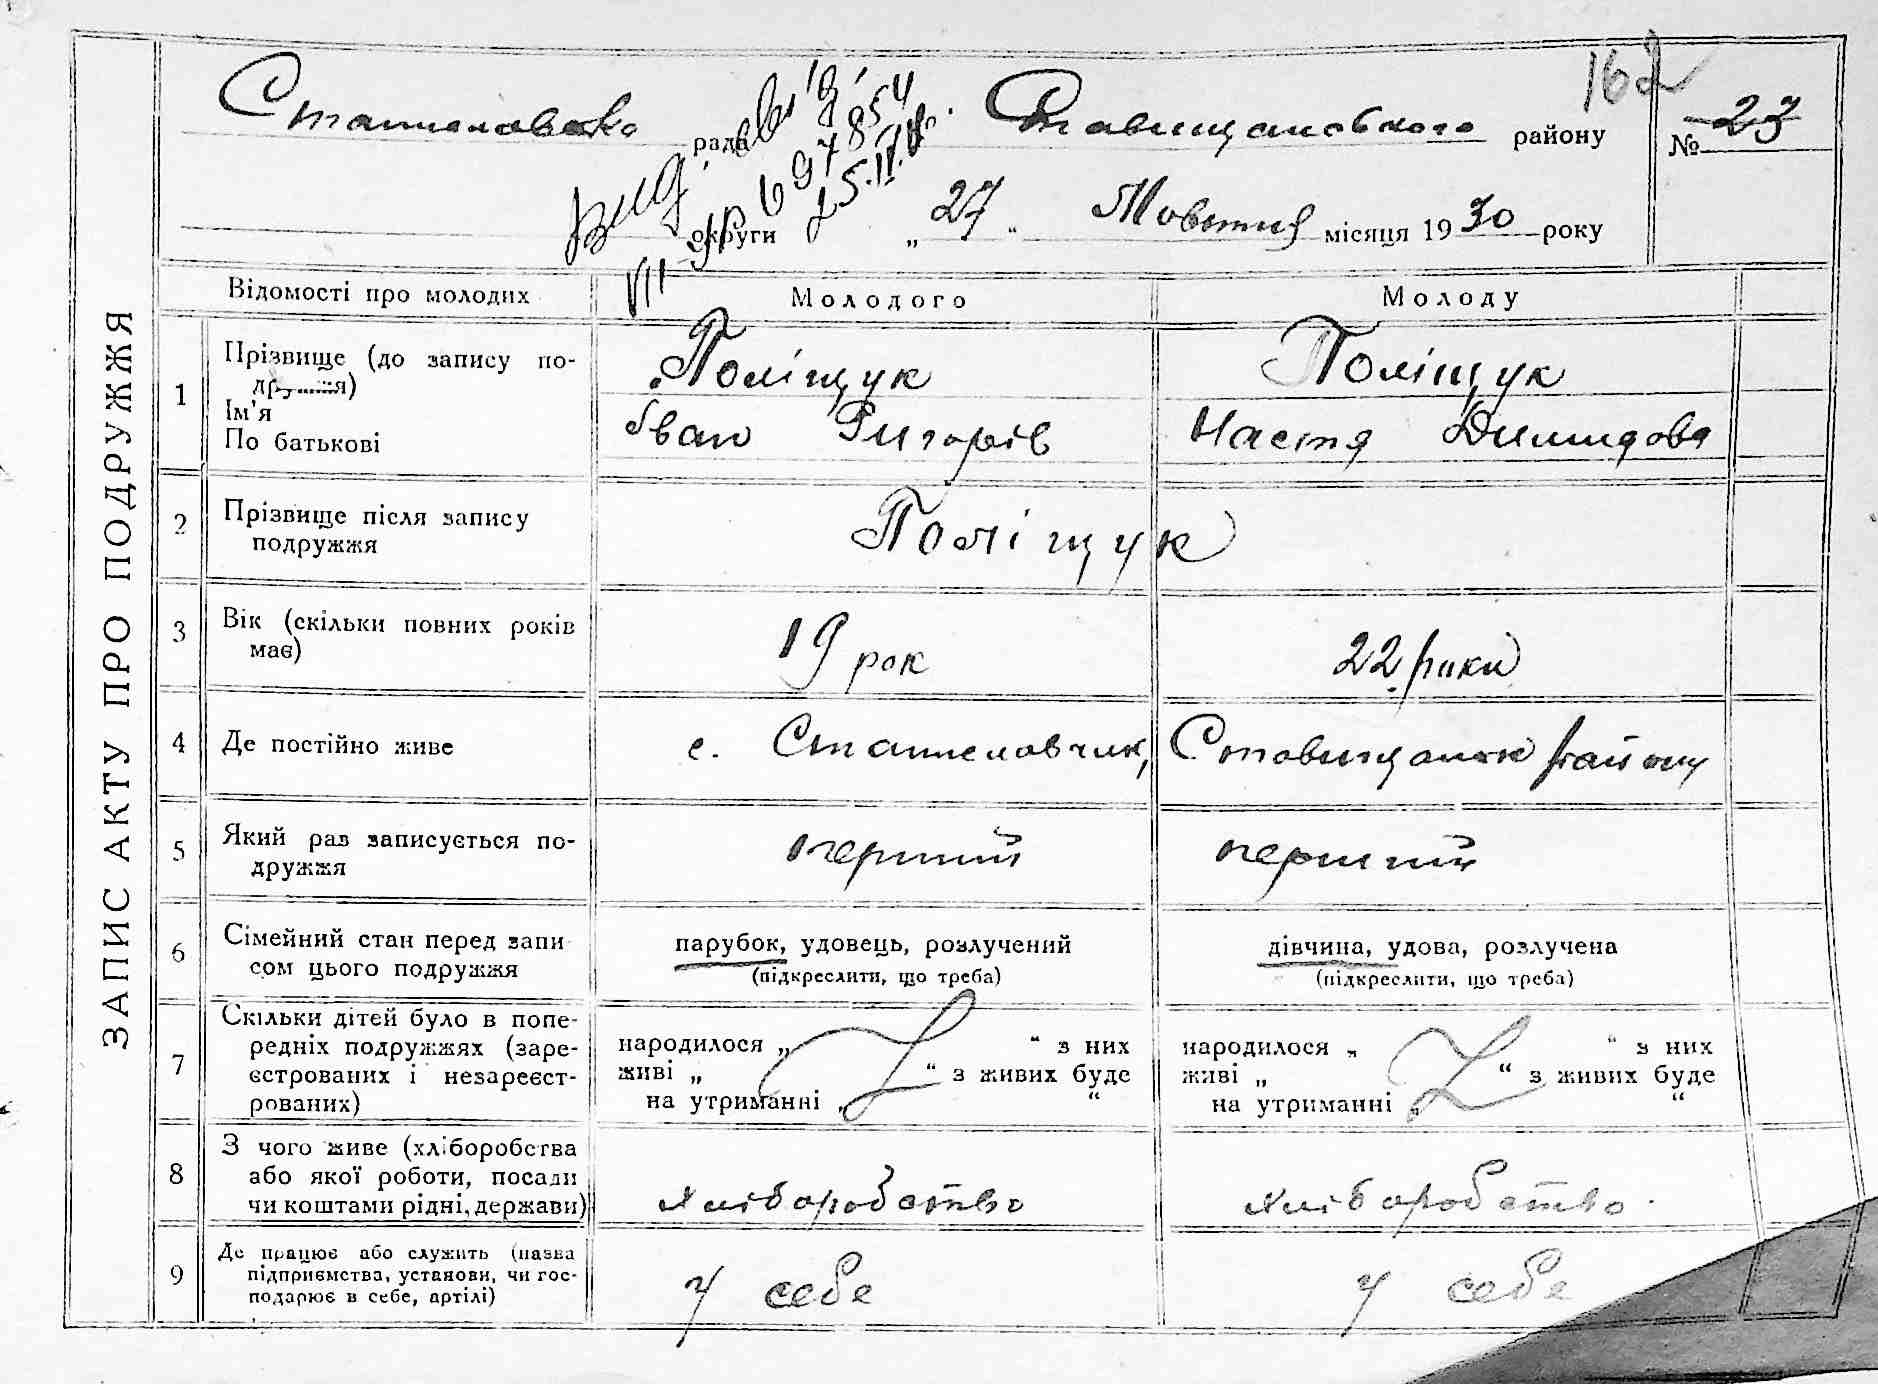 162
Станиловська рада Ставищановського району № 23
округи „ 27 “ Жовтня місяця 1930 року
ЗАПИС АКТУ ПРО ПОДРУЖЖЯ
Відомості про молодих Молодого Молоду
1 Прізвище (до запису подружжя) Поліщук Поліщук
Ім'я
По батькові Іван Григорів Настя Демидова
2 Прізвище після запису
подружжя Поліщук
3 Вік (скільки повних років
має) 19 рок 22 роки
4 Де постійно живе с. Станиловчик, Ставищанськ району
5 Який раз записується по-
дружжя перший перший
6 Сімейний стан перед запи
сом цього подружжя парубок, удовець, розлучений дівчина, удова, розлучена
(підкреслити, що треба) (підкреслити, що треба)
7 Скільки дітей було в попе-
редніх подружжях (заре-
єстрованих і незареєст-
рованих) народилося „ “ з них народилося „ “ з них
живі „ “ з живих буде живі „ “ з живих буде
на утриманні „ “ на утриманні „ “
8 З чого живе (хліборобства
або якої роботи, посади
чи коштами рідні, держави) хліборобство хліборобство
9 Де працює або служить (назва
підприємства, установи, чи гос-
подарює в себе, артілі) у себе у себе